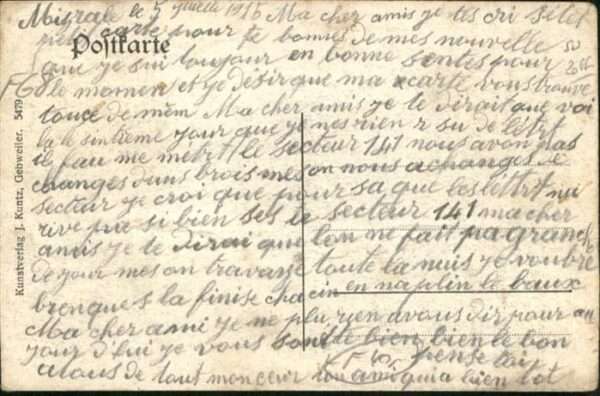 Mizrale le 5 juillet 1915 Ma cher amis je tes cri se let
petit carte pour te bonnes de mes nouvelle
Postkarte
que je sui toujour en bonne sentes pour
le momen et je désir que ma carte vous trouve
touce de mem Ma cher amis je te dirait que voi
la le sintieme jour que je mes rien r su de létrt
il fau me métrt le secteur 141 nous avon pas
changes dans trois mes on nous a changes de
secteur je croi que pour sa que les léttrt nui
rive pas si bien ses le secteur 141 ma cher
amis je te dirai que lon ne fait pa grans
de jour mes on travanse toute la nuis je voudre
brenque s la finise chacin en naplin le baux
Ma cher ami je ne plu rjen avous dir pour au
jour d'hui je vous sonitte bien bien le bon
pense toi
alous de tout mon ceur ton ami qui a bien tot
Kunstverlag J. Kuntz, Gebweiler. 5479